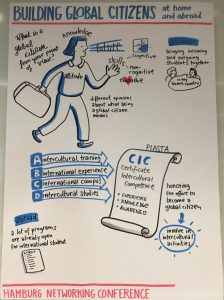 BUILDING GLOBAL CITIZENS at home and abroad
What is a
global
citizen
from your point
of view?
knowledge
skills
cognitive
non-cognitive
attitude
different opinions
about what being
a global citizen
means
bringing incoming
and outgoing
students together
my home country
A Intercultural training
B International experience
C International campus
D Intercultural studies
PIASTA
CIC
Certificate
Intercultural
Competence
EXPERIENCE
KNOWLEDGE
AWARENESS
honoring
the effort
to become
a global
citizen
involve in
intercultural
activities
Abroad
a lot of programs
are already open
for international student
HAMBURG NETWORKING CONFERENCE